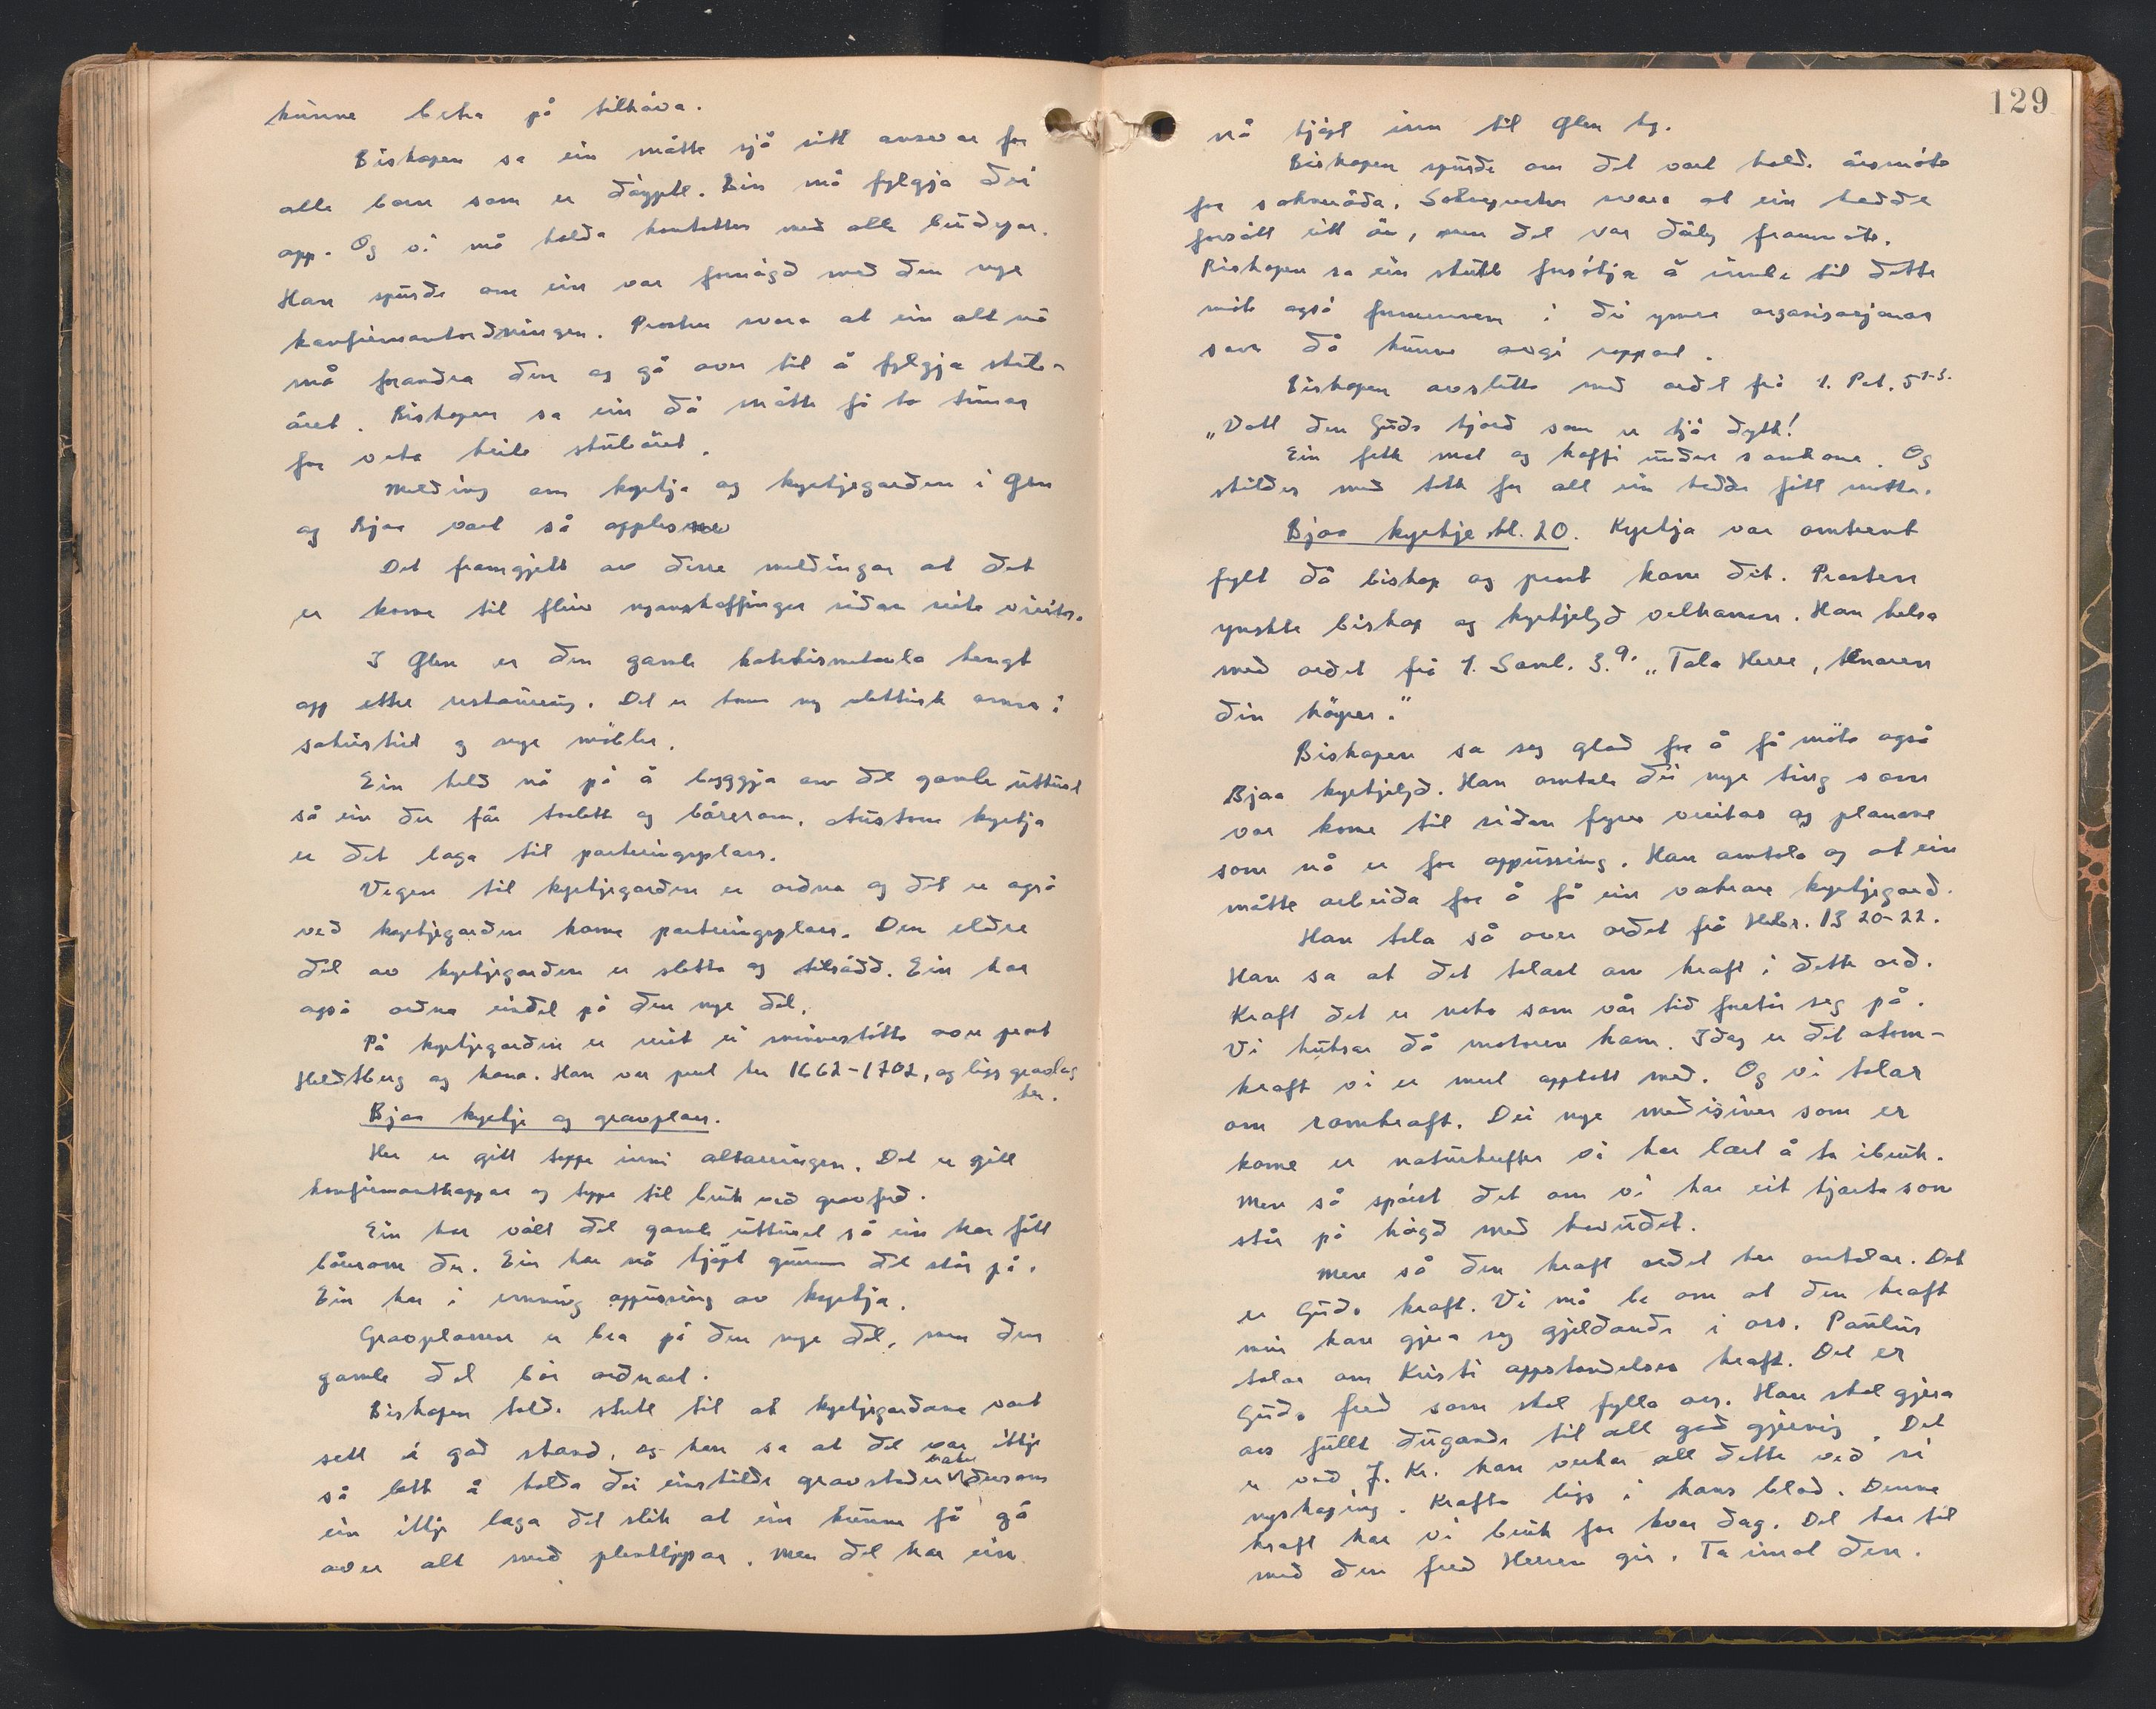 kunne betra på tilhøva.
Biskopen sa ein måtte sjå sitt ansvar for
alle born som er døypte. Ein må fylgja dei
opp. Og vi må halda kontakten med alle budeyar.
Han spurde om ein var fornøgd med den nye
konfirmantordningen. Prosten svara at ein alt nå
må forandra den og gå over til å fylgja skule-
året. Biskopen sa ein då måtte få to timar
for veka heile skuleåret.
Melding om kyrkja og kyrkjegarden i Glen
og Bjaa vart så opplesne
Det framgjekk av desse meldingar at det
er kome til fleire nyanskaffinger sidan siste visitas.
I Glen er den gamle katekismetavla hengt
opp etter restauering. Det er kome ny elektrisk omn i
sakristiet og nye møbler.
Ein held nå på å byggja om det gamle uthuset
så ein der får toalett og bårerom. Austom kyrkja
er det laga til parkeringsplass.
Vegen til kyrkjegarden er ordna og det er også
ved kyrkjegarden kome parkeringsplass. Den eldre
del av kyrkjegarden er sletta og tilsådd. Ein har
også ordna eindel på den nye del.
På kyrkjegarden er reist ei minnestøtte over prest
Heldtberg og kona. Han var prest her 1662-1702, og ligg gravlag
her.
Bjaa kyrkje og gravplass.
Her er gitt teppe inni altarringen. Det er gitt
konfirmantkappar og teppe til bruk ved gravferd.
Ein har vølt det gamle uthuset så ein har fått
bårerom der. Ein har nå kjøpt grunnen det står på.
Ein har i emning oppussing av kyrkja.
Gravplassen er bra på den nye del, men den
gamle del bør ordnast.
Biskopen heldt sterkt til at kyrkjegardane vart
sett i god stand, og han sa at det var ikkje
så lett å halda dei einskilde gravsteder vakre dersom
ein ikkje laga det slik at ein kunne få gå
over alt med plenklippar. Men det har ein
129
nå kjøpt inn til Glen kg.
Biskopen spurde om det vart halde årsmøte
for sokneråda. Sokneprestn svara at ein hadde
forsøkt eitt år, men det var dårleg frammøte.
Biskopen sa ein skulle forsøkja å innle til dette
møte også formennene i dei ymse organisasjonar
som då kunne avgi rapport.
Biskopen avslutta med ordet frå 1. Pet. 5 1-5.
„Vakt den Guds hjord som er hjå dykk!
Ein fekk mat og kaffi under samkoma. Og
skildes med takk for alt ein hadde fått motta.
Bjaa kyrkje kl. 20. Kyrkja var omtrent
fylt då biskop og prest kom dit. Prosten
ynskte biskop og kyrkjelyd velkomen. Han helsa
med ordet frå 1. Saml. 3.9. „Tala Herre, tenaren
din høyrer."
Biskopen sa seg glad for å få møte også
Bjaa kyrkjelyd. Han omtala dei nye ting som
var kome til sidan fyrre visitas og planane
som nå er for oppussing. Han omtala og at ein
måtte arbeida for å få ein vakrare kyrkjegard.
Han tala så over ordet frå Hebr. 13 20-22.
Han sa at det talast om kraft i dette ord.
Kraft det er noko som vår tid forstår seg på.
Vi hugsar då motoren kom. Idag er det atom-
kraft vi er mest opptatt med. Og vi talar
om romkraft. Dei nye medisiner som er
kome er naturkrefter vi har lært å ta ibruk.
Men så spørst det om vi har eit hjarta som
står på høgd med hovudet.
Men så den kraft ordet her omtalar. Det
er Guds kraft. Vi må be om at den kraft
min kan gjera seg gjeldande i oss. Paulus
talar om Kristi oppstandelses kraft. Det er
Guds fred som skal fylla oss. Han skal gjera
oss fullt dugande til all god gjerning. Det
er ved J. Kr. han verkar alt dette ved si
nyskaping. Krafta ligg i hans blod. Denne
kraft har vi bruk for kvar dag. Det har til
med den fred Herren gir. Ta imot den.